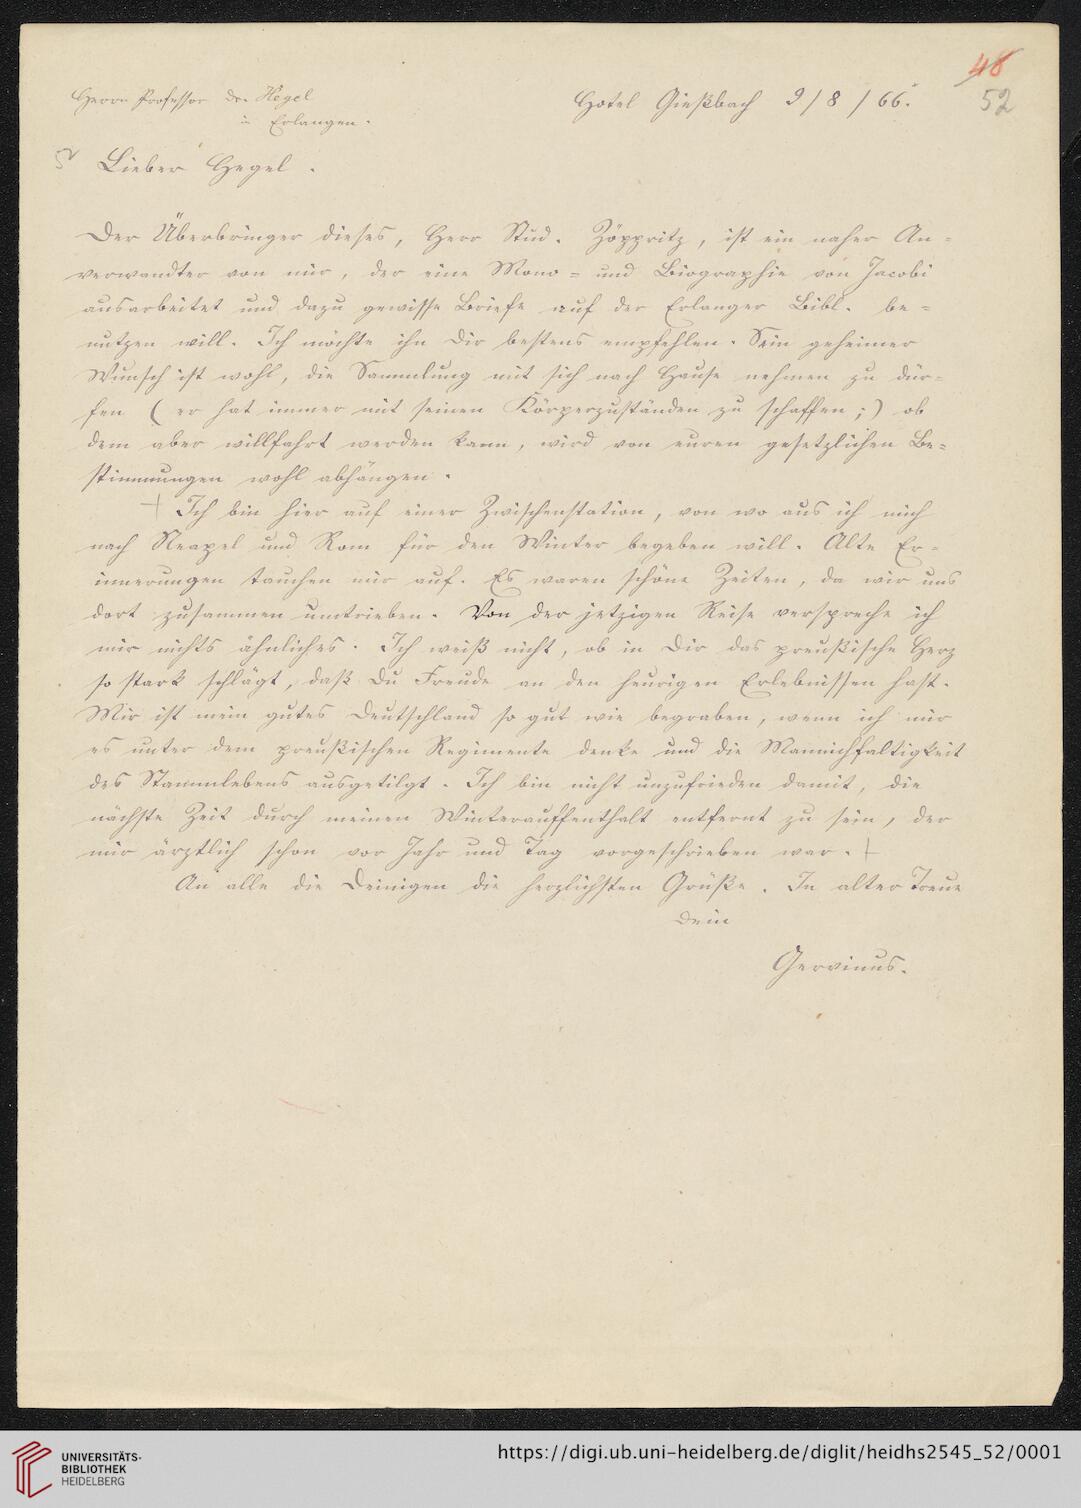 48
Herrn Professor Dr. Hegel
Hotel Gießbach 9/8/66.
52
in Erlangen.
52
Lieber Hegel.
Der Überbringer dieses, Herr Stud. Zöppritz, ist ein naher An=
verwandter von mir, der eine Mono= und Biographie von Jacobi
ausarbeitet und dazu gewisse Briefe auf der Erlanger Bibl. be=
nutzen will. Ich möchte ihn Dir bestens empfehlen. Sein geheimer
Wunsch ist wohl, die Sammlung mit sich nach Hause nehmen zu dür=
fen (er hat immer mit seinen Körperzuständen zu schaffen;) ob
dem aber willfahrt werden kann, wird von euren gesetzlichen Be=
stimmungen wohl abhängen.
+ Ich bin hier auf einer Zwischenstation, von wo aus ich mich
nach Neapel und Rom für den Winter begeben will. Alte Er=
innerungen tauchen mir auf. Es waren schöne Zeiten, da wir uns
dort zusammen umtrieben. Von der jetzigen Reise verspreche ich
mir nichts ähnliches. Ich weiß nicht, ob in Dir das preußische Herz
so stark schlägt, daß Du Freude an den heurigen Erlebnissen hast.
Mir ist mein gutes Deutschland so gut wie begraben, wenn ich mir
es unter dem preußischen Regimente denke und die Mannichfaltigkeit
des Stammlebens ausgetilgt. Ich bin nicht unzufrieden damit, die
nächste Zeit durch meinen Winterauffenthalt entfernt zu sein, der
mir ärztlich schon vor Jahr und Tag vorgeschrieben war. +
An alle die Deinigen die herzlichsten Grüße. In alter Treue
Dein
Gervinus.
UNIVERSITÄTS-
BIBLIOTHEK
HEIDELBERG
https://digi.ub.uni-heidelberg.de/diglit/heidhs2545_52/0001